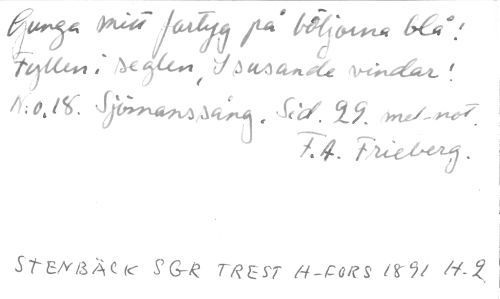 Gunga mitt fartyg på böljorna blå!
Fyllen i seglen, I susande vindar!
N:o, 18. Sjömanssång. Sid. 29. mel-not.
F. A. Frieberg.
STENBÄCK SGR TREST H-FORS 1891 H-2